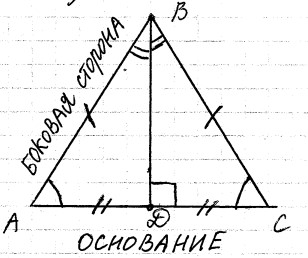 B
БОКОВАЯ СТОРОНА
A
D
C
ОСНОВАНИЕ